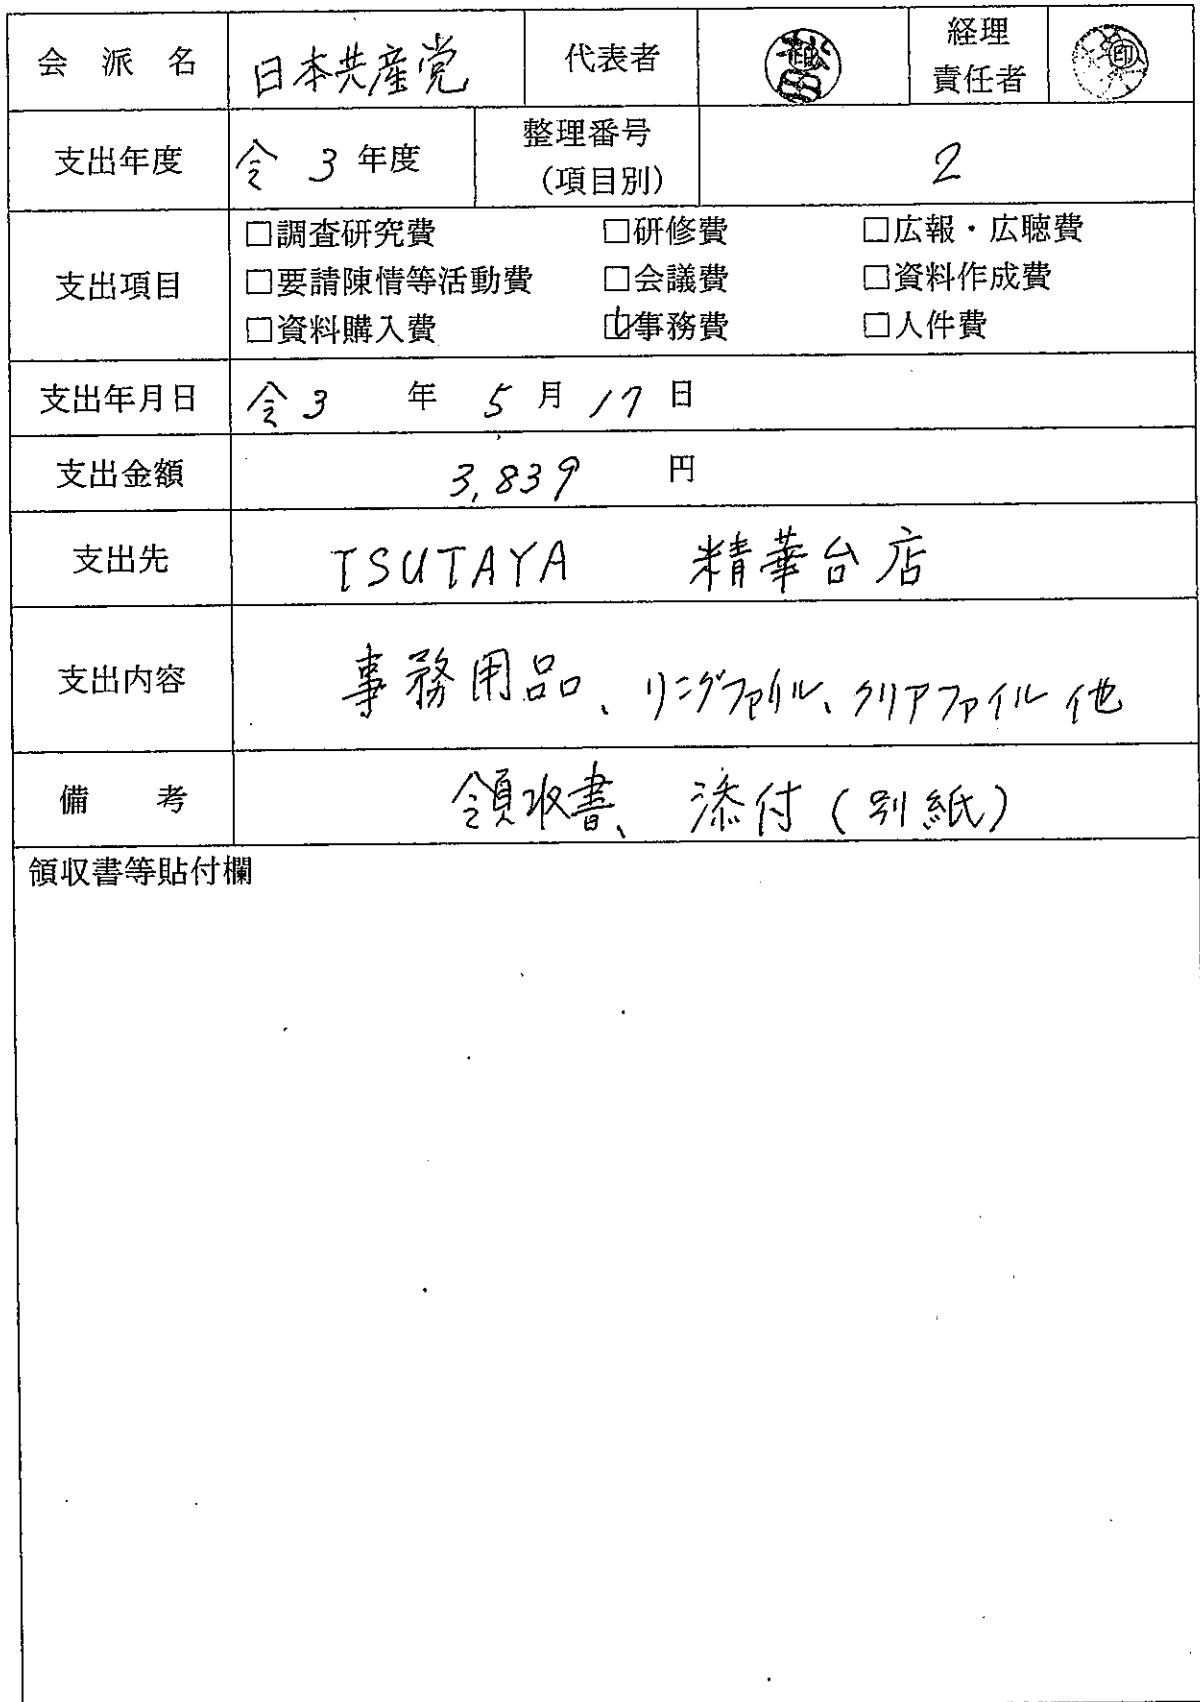 会派名 日本共産党 代表者 経理責任者
支出年度 令3年度 整理番号（項目別） 2
支出項目
□調査研究費 □研修費 □広報・広聴費
□要請陳情等活動費 □会議費 □資料作成費
□資料購入費 ☑事務費 □人件費
支出年月日 令3年5月17日
支出金額 3,839円
支出先 TSUTAYA 精華台店
支出内容 事務用品、リングファイル、クリアファイル他
備考 領収書、添付(別紙)
領収書等貼付欄